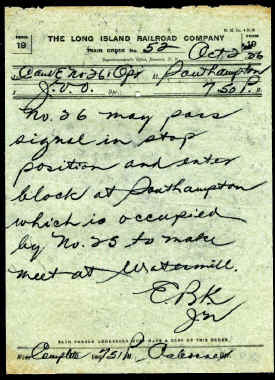 FORM 19
THE LONG ISLAND RAILROAD COMPANY
TRAIN ORDER No. 52
Superintendent's Office, Oct 2 36
C and E No 26 : Opr At Southampton
J.V.O. 7 50 P.
No. 26 may pass
signal in stop
position and enter
block at Southampton
which is occupied
by No. 25 to make
meet at Watermill.
E.B.K
EACH PERSON ADDRESSED MUST HAVE A COPY OF THIS ORDER.
Made Complete 751 P